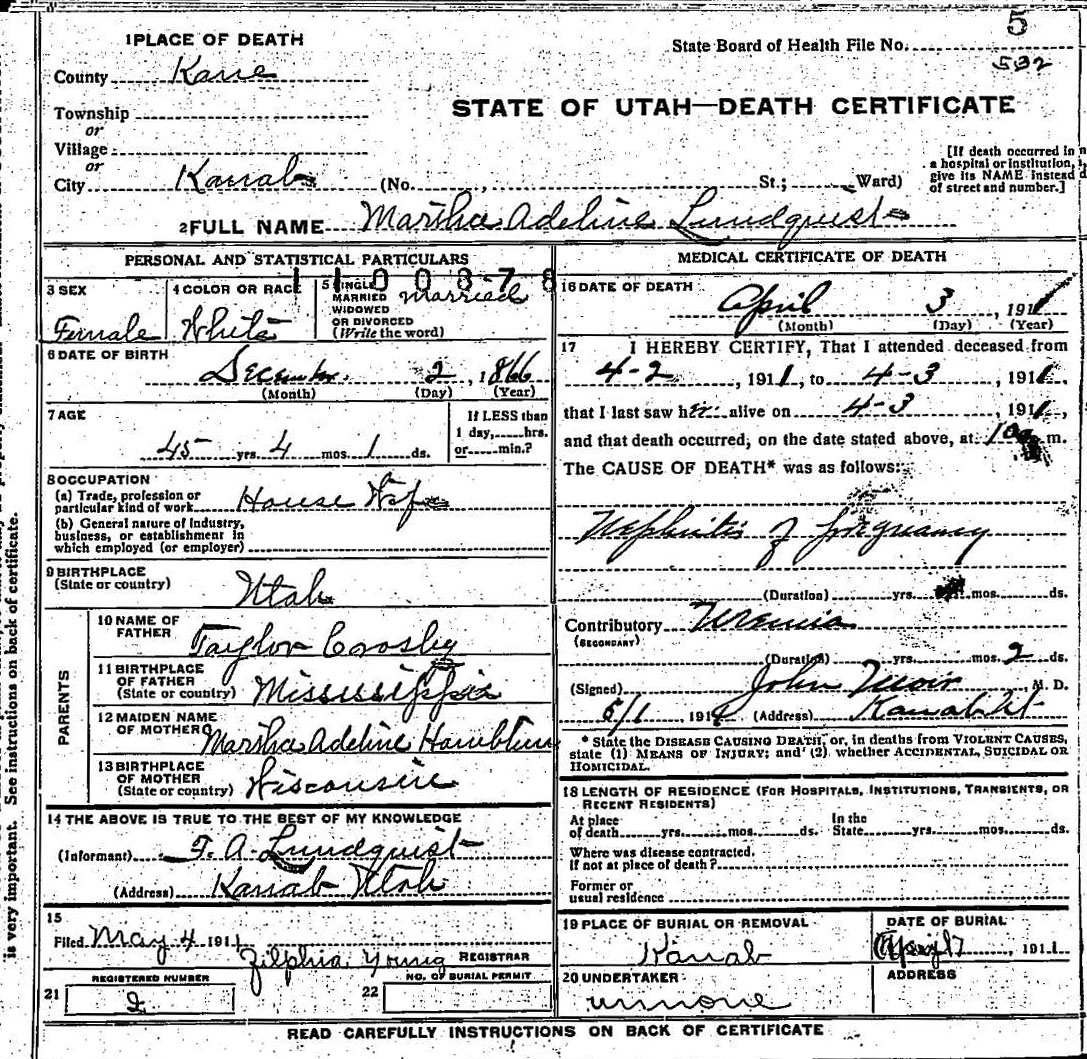 5
1 PLACE OF DEATH
State Board of Health File No.
532
County Kane
STATE OF UTAH—DEATH CERTIFICATE
Township
or
Village
or
[If death occurred in
a hospital or institution,
give its NAME instead
of street and number.]
City Kanab (No. , St.; Ward)
2 FULL NAME Martha Adeline Lundquist
PERSONAL AND STATISTICAL PARTICULARS
3 SEX
Female
4 COLOR OR RACE
White
5 SINGLE
MARRIED
WIDOWED
OR DIVORCED
(Write the word)
Married
6 DATE OF BIRTH
December 2, 1866
(Month) (Day) (Year)
7 AGE
45 yrs. 4 mos. 1 ds.
If LESS than
1 day, hrs.
or min.?
8 OCCUPATION
(a) Trade, profession or
particular kind of work House Wife
(b) General nature of industry,
business, or establishment in
which employed (or employer)
9 BIRTHPLACE
(State or country) Utah
PARENTS
10 NAME OF
FATHER Taylor Crosby
11 BIRTHPLACE
OF FATHER
(State or country) Mississippi
12 MAIDEN NAME
OF MOTHER Martha Adeline Hamblin
13 BIRTHPLACE
OF MOTHER
(State or country) Wisconsin
14 THE ABOVE IS TRUE TO THE BEST OF MY KNOWLEDGE
(Informant) F. A. Lundquist
(Address) Kanab Utah
15
Filed May 4 1911
Zilphia Young REGISTRAR
REGISTERED NUMBER
21 2
NO. OF BURIAL PERMIT
22
MEDICAL CERTIFICATE OF DEATH
16 DATE OF DEATH
April 3, 1911
(Month) (Day) (Year)
17 I HEREBY CERTIFY, That I attended deceased from
4-2, 1911, to 4-3, 1911,
that I last saw her alive on 4-3, 1911,
and that death occurred, on the date stated above, at m.
The CAUSE OF DEATH* was as follows:
Nephritis of pregnancy
(Duration) yrs. mos. ds.
Contributory Uremia
(SECONDARY)
(Duration) yrs. mos. 2 ds.
(Signed) John Muir M. D.
5/1, 191 (Address) Kanab Ut
* State the DISEASE CAUSING DEATH, or, in deaths from VIOLENT CAUSES,
state (1) MEANS OF INJURY; and (2) whether ACCIDENTAL, SUICIDAL OR
HOMICIDAL.
18 LENGTH OF RESIDENCE (FOR HOSPITALS, INSTITUTIONS, TRANSIENTS, OR
RECENT RESIDENTS)
At place
of death yrs. mos. ds.
In the
State yrs. mos. ds.
Where was disease contracted.
If not at place of death?
Former or
usual residence
19 PLACE OF BURIAL OR REMOVAL
Kanab
DATE OF BURIAL
April, 1911
20 UNDERTAKER
ADDRESS
READ CAREFULLY INSTRUCTIONS ON BACK OF CERTIFICATE
is very important. See instructions on back of certificate.